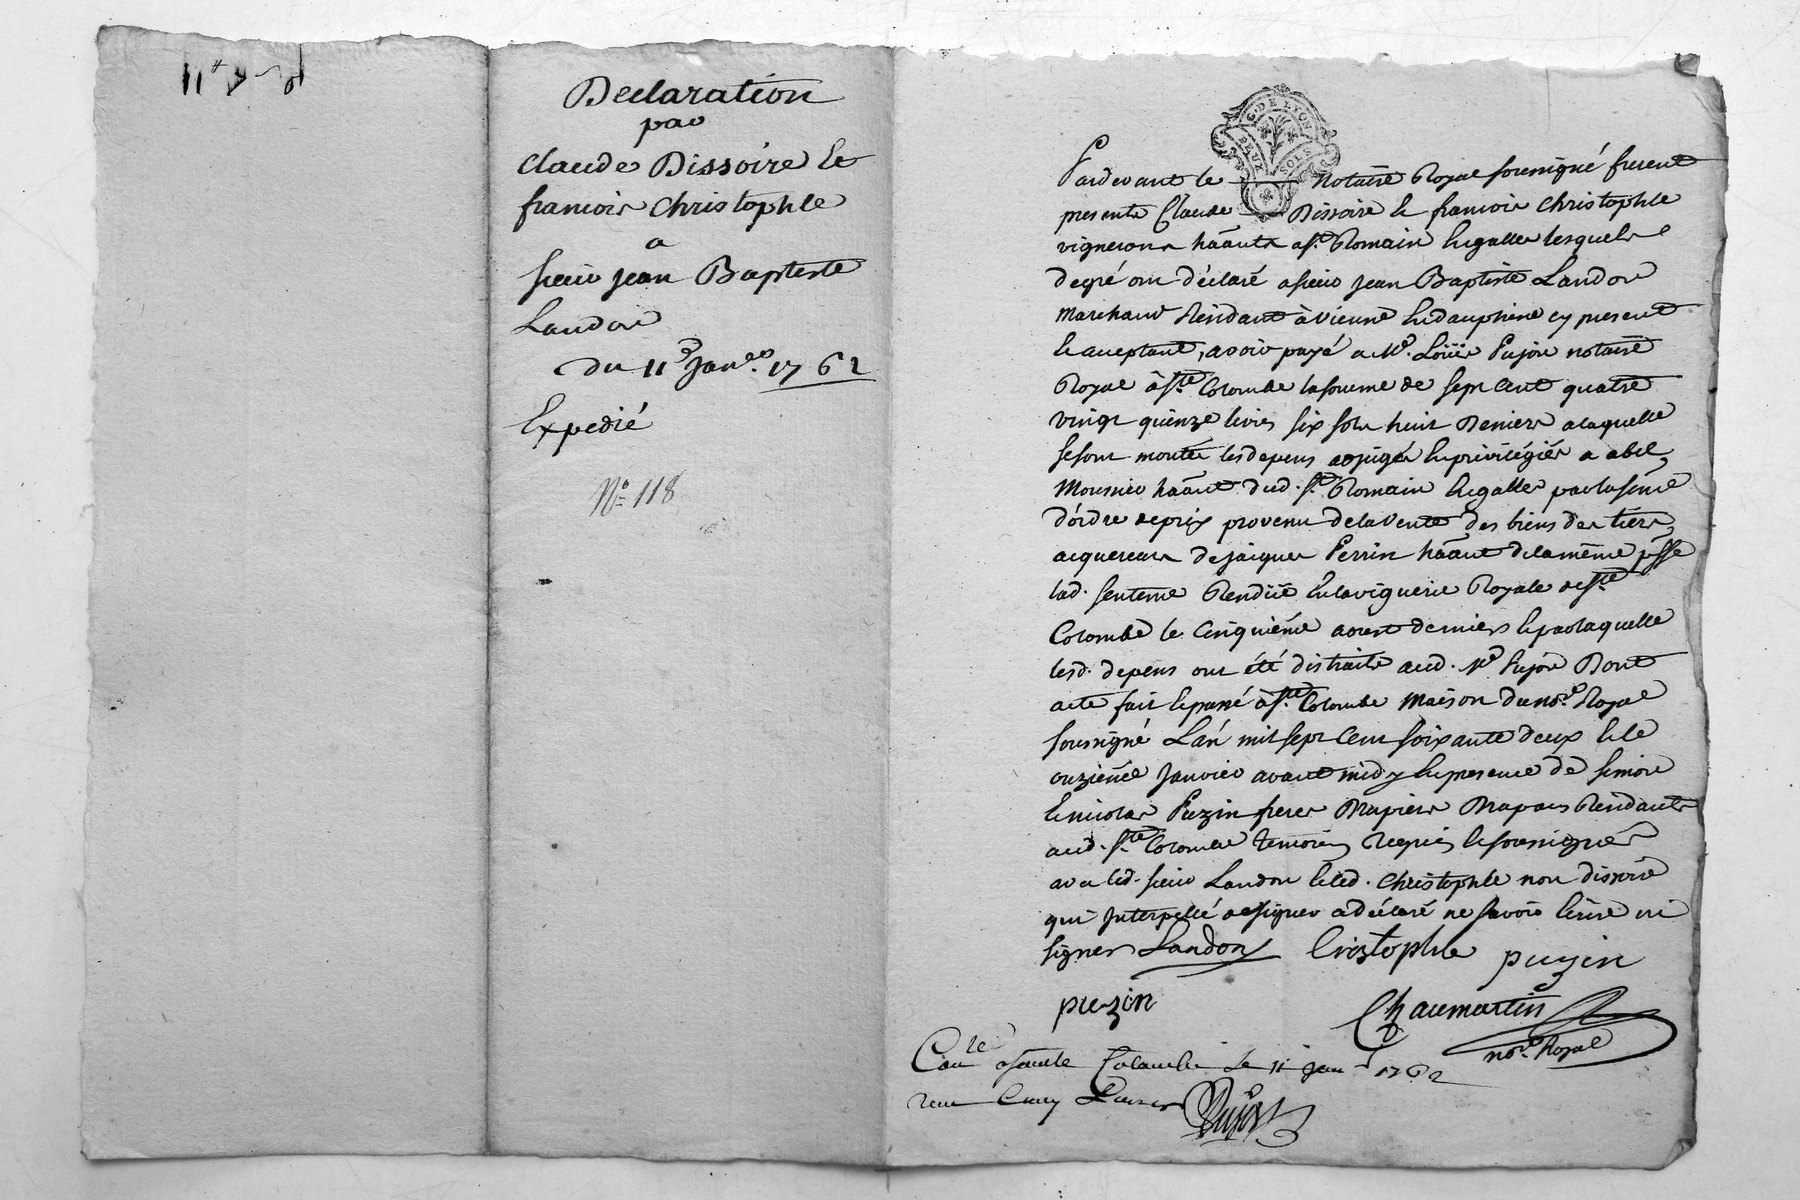 11# 9 s d
Declaration
par
Claude Dissoire Et
francois Christophle
a
sieur jean Baptiste
Landon
du 11e Janer. 1762
Expedié
No 118
G. DE LYON
DEUX SOLS
Pardevant le notaire Royal soussigné furent
presents Claude Dissoire & francois Christophle
vignerons hãants a St. Romain Engalle lesquels
degré ont déclaré a sieur Jean Baptiste Landon
marchand Résidant à vienne En dauphiné cy present
Et acceptant, avoir payé a Me. Loüis Pujon notaire
Royal à Ste. Colombe la somme de sept cent quatre
vingt quinze livres six sols huit deniers a laquelle
se sont montés les depens adjugés En privilégiés a abel
Mousnier hãant dud. St. Romain Engalle par la sence
d'ordre de prix provenu de la vente des biens des tiers
acquereurs de jacques Perrin hãant de la même psse
lad. sentence Rendüe En la viguerie Royale de Ste.
Colombe le cinquiéme aoust dernier Et par laquelle
lesd. depens ont été distraits aud. Me Pujon Dont
acte fait Et passé à Ste. Colombe maison du nore. Royal
soussigné L'an mil sept cent soixante deux Et le
onziéme Janvier avant midy En presence de simon
Et nicolas Puzin freres Drapiers Drapans Résidants
aud. Ste. Colombe temoins requis Et soussignés
avec led. sieur Landon Et led. Christophle non dissoire
qui Interpellé de signer a déclaré ne savoir Ecrire ni
signer Landon Cristophle puzin
puzin
Chaumartin
nore. Royal
Conlé a sainte Colombe le 11 janr 1762
recu
Pujon